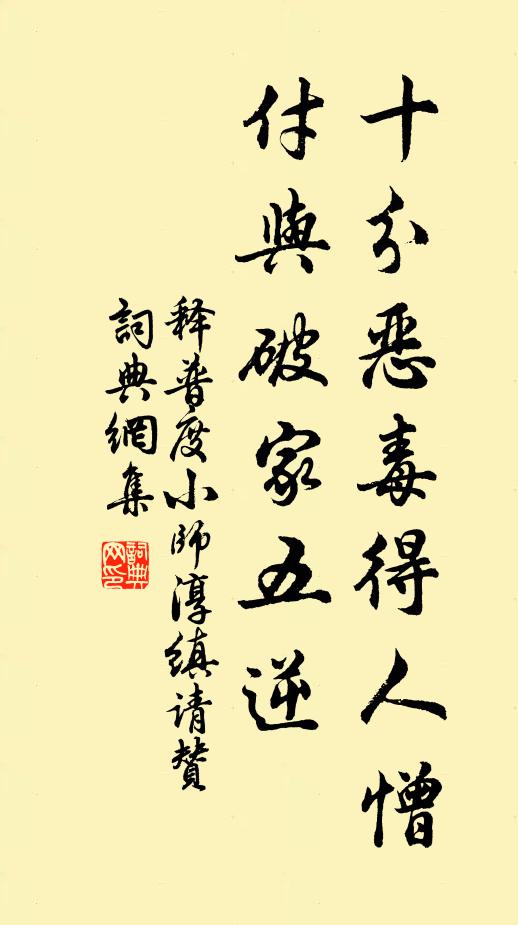 十分恶毒得人憎
付與破家五逆
释普度小师淳缜请赞
詞典網集
詞典网印